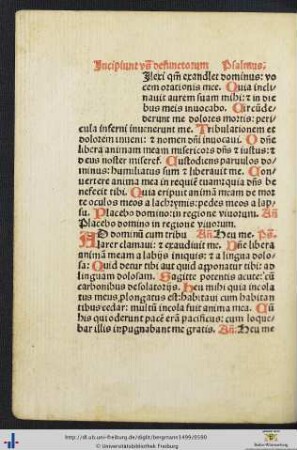 Incipiunt vṡ defunctorum Psalmus.
Ilexi qm̄ exaudiet dominus: vo
cem orationis mee. Quia incli
nauit aurem suam mihi: ⁊ in die
bus meis inuocabo. Circūde/
derunt me dolores mortis: peri
cula inferni inuenerunt me. Tribulationem et
dolorem inueni: ⁊ nomen dn̄i inuocaui. O dn̄e
libera animam meam misericors dn̄s ⁊ iustus: ⁊
deus noster miseret̄. Custodiens paruulos do
minus: humiliatus sum ⁊ liberauit me. Con
uertere anima mea in requiē tuam: quia dn̄s be
nefecit tibi. Quia eripuit animā meam de mor
te oculos meos a lachrymis: pedes meos a lap
su. Placebo domino: in regione viuorum. Añ
Placebo domino in regione viuorum.
AD dominū cum tribu Añ Heu me. Ps̄
larer clamaui: ⁊ exaudiuit me. Dn̄e libera
animā meam a labijs iniquis: ⁊ a lingua dolo
sa: Quid detur tibi aut quid apponatur tibi: ad
linguam dolosam. Sagitte potentis acute: cū
carbonibus desolatorijs. Heu mihi quia incola
tus meus plongatus est: habitaui cum habitan
tibus cedar: multū incola fuit anima mea. Cū
his qui oderunt pacē erā pacificus: cum loque
bar illis inpugnabant me gratis. Añ: Heu me
http://dl.ub.uni-freiburg.de/diglit/bergmann1499/0590
© Universitätsbibliothek Freiburg